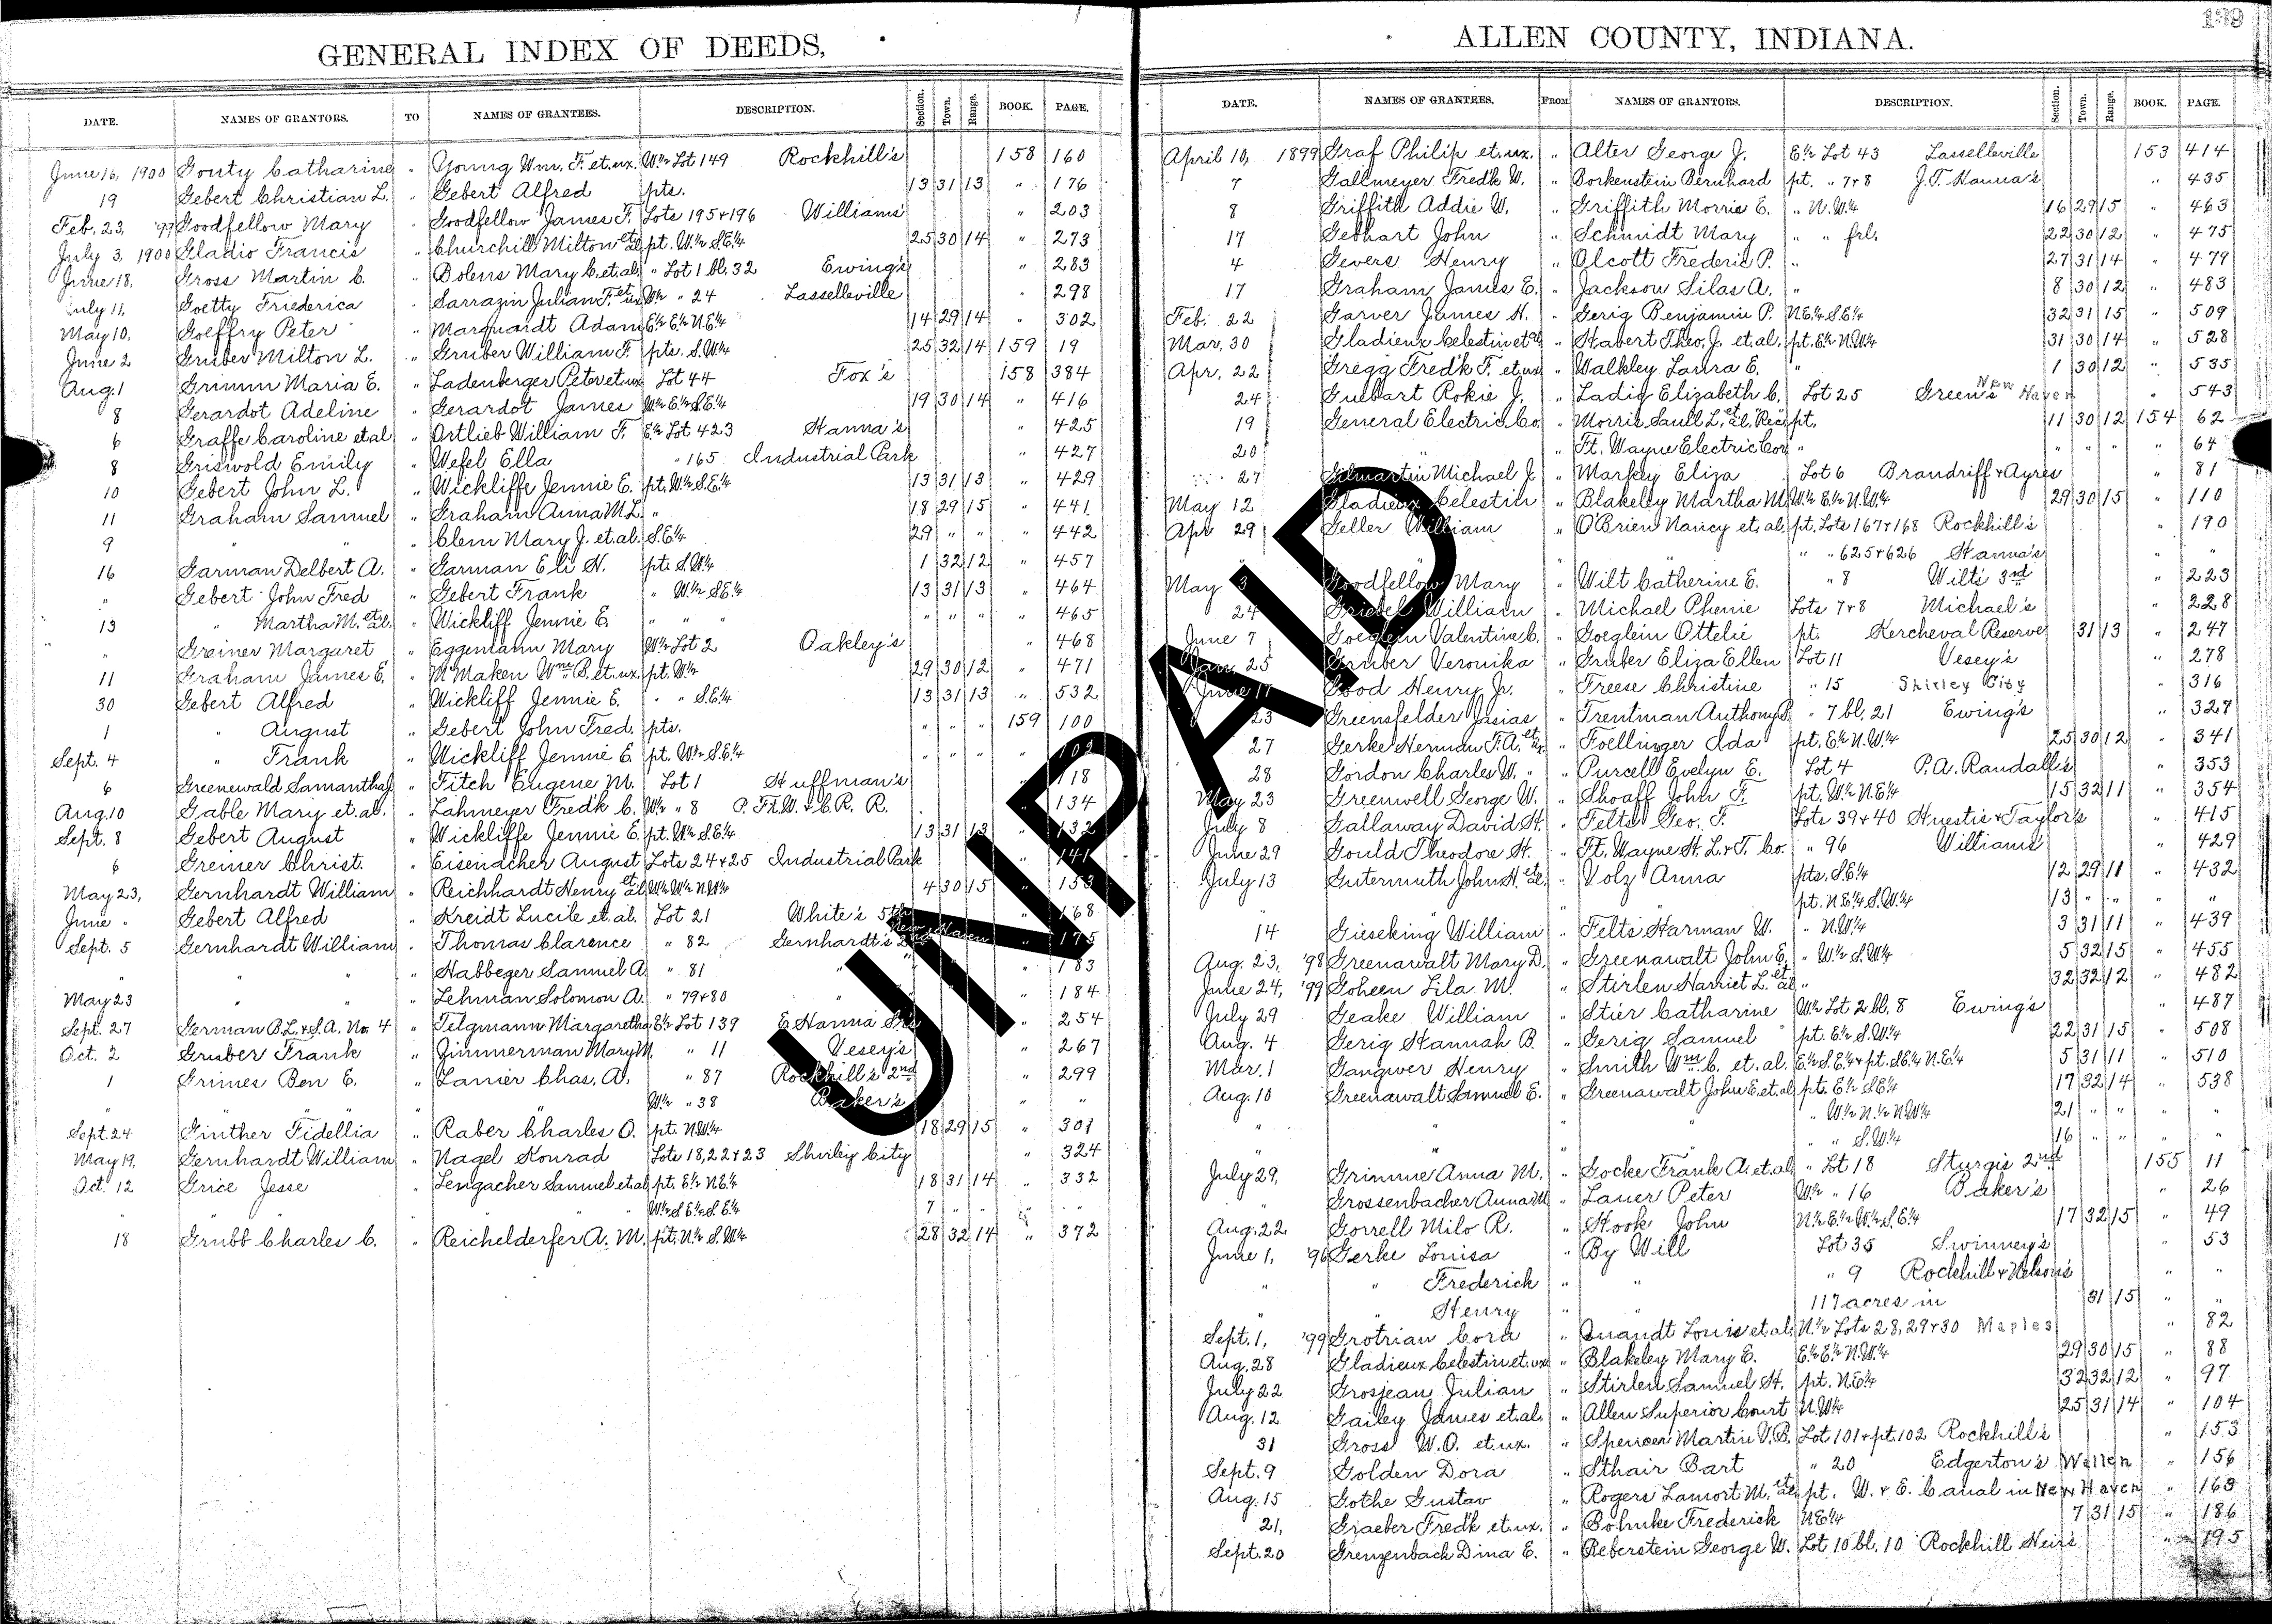 GENERAL INDEX OF DEEDS,
DATE. NAMES OF GRANTORS. TO NAMES OF GRANTEES. DESCRIPTION. Section. Town. Range. BOOK. PAGE.
June 16, 1900 Gouty Catharine " Young Wm. F. et. ux. W.½ Lot 149 Rockhill's 158 160
19 Gebert Christian L. " Gebert Alfred pts. 13 31 13 " 176
Feb. 23, '99 Goodfellow Mary " Goodfellow James F. Lots 195 + 196 Williams' " 203
July 3, 1900 Gladio Francis " Churchill Milton et al pt. W.½ S.E.¼ 25 30 14 " 273
June 18, Gross Martin C. " Bolens Mary C. et. al. " Lot 1 bl. 32 Ewing's " 283
July 11, Goetty Friederica " Sarrazin Julian F. et ux W½ " 24 Lasselleville " 298
May 10, Goeffry Peter " Marquardt Adam E.½ E.½ N.E.¼ 14 29 14 " 302
June 2 Gruber Milton L. " Gruber William F. pts. S.W.¼ 25 32 14 159 19
Aug. 1 Grimm Maria E. " Ladenberger Peter et ux Lot 44 Fox's 158 384
8 Gerardot Adeline " Gerardot James W.½ E.½ S.E.¼ 19 30 14 " 416
6 Graffe Caroline et al " Ortlieb William F. E.½ Lot 423 Hanna's " 425
8 Griswold Emily " Wefel Ella " 165 Industrial Park " 427
10 Gebert John L. " Wickliffe Jennie E. pt. W.½ S.E.¼ 13 31 13 " 429
11 Graham Samuel " Graham Anna M.L. " 18 29 15 " 441
9 " " " Clem Mary J. et. al. S.E.¼ 29 " " " 442
16 Garman Delbert A. " Garman Eli H. pt. S.W.¼ 1 32 12 " 457
" Gebert John Fred " Gebert Frank " W.½ S.E.¼ 13 31 13 " 464
13 " Martha M. et al. " Wickliff Jennie E. " " " " " " " 465
" Greiner Margaret " Eggemann Mary W.½ Lot 2 Oakley's " 468
11 Graham James E. " McMaken Wm. B. et. ux. pt. W.½ 29 30 12 " 471
30 Gebert Alfred " Wickliff Jennie E. " " S.E.¼ 13 31 13 " 532
1 " August " Gebert John Fred. pts. " " " 159 100
Sept. 4 " Frank " Wickliff Jennie E. pt. W.½ S.E.¼ " " " " 102
6 Greenewald Samantha J " Fitch Eugene M. Lot 1 Huffman's " 118
Aug. 10 Gable Mary et. al. " Lahmeyer Fredk C. W.½ " 8 P. Ft. W. + C. R. R. " 134
Sept. 8 Gebert August " Wickliffe Jennie E. pt. W.½ S.E.¼ 13 31 13 " 132
6 Greiner Christ. " Eisenacher August Lots 24 + 25 Industrial Park " 141
May 23, Gernhardt William " Reichhardt Henry et al W.½ W.½ N.W.¼ 4 30 15 " 153
June " Gebert Alfred " Kreidt Lucile et. al. Lot 21 White's 5th " 168
Sept. 5 Gernhardt William " Thomas Clarence " 82 Gernhardt's 2nd New Haven " 175
" " " " Habbeger Samuel A " 81 " " " 183
May 23 " " " Lehman Solomon A. " 79 + 80 " " " 184
Sept. 27 German B.L. + S.A. No. 4 " Telgmann Margaretha E.½ Lot 139 E. Hanna Sr's " 254
Oct. 2 Gruber Frank " Zimmerman Mary M. " 11 Vesey's " 267
1 Grimes Ben E. " Lanier Chas. A. " 87 Rockhill's 2nd " 299
" " " W.½ " 38 Baker's " "
Sept. 24 Ginther Fidellia " Raber Charles O. pt. N.W.¼ 18 29 15 " 301
May 19, Gernhardt William " Nagel Konrad Lots 18, 22 + 23 Shirley City " 324
Oct. 12 Grice Jesse " Lengacher Samuel et al pt. E.½ N.E.¼ 18 31 14 " 332
" " " W.½ S.E.¼ S.E.¼ 7 " " " "
18 Grubb Charles C. " Reichelderfer A. M. pt. N.½ S.W.¼ 28 32 14 " 372
ALLEN COUNTY, INDIANA.
139
DATE. NAMES OF GRANTEES. FROM NAMES OF GRANTORS. DESCRIPTION. Section. Town. Range. BOOK. PAGE.
April 10, 1899 Graf Philip et. ux. " Alter George J. E.½ Lot 43 Lasselleville 153 414
7 Gallmeyer Fredk W. " Borkenstein Bernhard pt. " 7 + 8 J. T. Hanna's " 435
8 Griffith Addie W. " Griffith Morris E. " N.W.¼ 16 29 15 " 463
17 Gebhart John " Schmidt Mary " " frl. 22 30 12 " 475
4 Gevers Henry " Olcott Frederic P. " 27 31 14 " 479
17 Graham James E. " Jackson Silas A. " 8 30 12 " 483
Feb. 22 Garver James H. " Gerig Benjamin P. N.E.¼ S.E.¼ 32 31 15 " 509
Mar. 30 Gladieux Celestin et al " Habert Theo. J. et. al. pt. E.½ N.W.¼ 31 30 14 " 528
Apr. 22 Gregg Fredk F. et ux " Walkley Laura E. " 1 30 12 " 535
24 Guebart Rokie J. " Ladig Elizabeth C. Lot 25 Green's New Haven " 543
19 General Electric Co. " Morris Saull L. et al, Rec pt. 11 30 12 154 62
20 " " Ft. Wayne Electric Cor " " " " " 64
27 Gilmartin Michael J " Markey Eliza Lot 6 Brandriff + Ayres " 81
May 12 Gladieux Celestin " Blakeley Martha M. W.½ E.½ N.W.¼ 29 30 15 " 110
Apr. 29 Geller William " O'Brien Nancy et. al. pt. Lots 167 + 168 Rockhill's " 190
" " " " " 625 + 626 Hanna's " "
May 3 Goodfellow Mary " Wilt Catherine E. " 8 Wilt's 3rd " 223
24 Griebel William " Michael Phenie Lots 7 + 8 Michael's " 228
June 7 Goeglein Valentine C. " Goeglein Ottelie pt. Kercheval Reserve 31 13 " 247
Jan. 25 Gruber Veronika " Gruber Eliza Ellen Lot 11 Vesey's " 278
June 17 Good Henry Jr. " Freese Christine " 15 Shirley City " 316
23 Greensfelder Josias " Trentman Anthony B. " 7 bl. 21 Ewing's " 327
27 Gerke Herman F. A. et ux. " Foellinger Ida pt. E.½ N.W.¼ 25 30 12 " 341
28 Gordon Charles W. " " Purcell Evelyn E. Lot 4 P. A. Randall's " 353
May 23 Greenwell George W. " Shoaff John F. pt. W.½ N.E.¼ 15 32 11 " 354
July 8 Gallaway David H. " Felts Geo. F. Lots 39 + 40 Huestis + Taylor's " 415
June 29 Gould Theodore H. " Ft. Wayne H. L. + T. Co. " 96 Williams' " 429
July 13 Gutermuth John H. et al. " Volz Anna pts. S.E.¼ 12 29 11 " 432
" " pt. N.E.¼ S.W.¼ 13 " " " "
14 Gieseking William " Felts Harman W. " N.W.¼ 3 31 11 " 439
Aug. 23, '98 Greenawalt Mary D. " Greenawalt John E. " W.½ S.W.¼ 5 32 15 " 455
June 24, '99 Goheen Lila M. " Stirlen Harriet L. et al " 32 32 12 " 482
July 29 Geake William " Stier Catharine W.½ Lot 2 bl. 8 Ewing's " 487
Aug. 4 Gerig Hannah B. " Gerig Samuel pt. E.½ S.W.¼ 22 31 15 " 508
Mar. 1 Gangwer Henry " Smith Wm. C. et. al. E.½ S.E.¼ + pt. S.E.¼ N.E.¼ 5 31 11 " 510
Aug. 10 Greenawalt Samuel E. " Greenawalt John E. et. al. pt. E.½ S.E.¼ 17 32 14 " 538
" W.½ N.½ N.W.¼ 21 " " " "
" " " " " S.W.¼ 16 " " " "
July 29, Grimme Anna M. " Gocke Frank A. et. al. " Lot 18 Sturgis 2nd 155 11
" Grossenbacher Anna M " Lauer Peter W.½ " 16 Baker's " 26
Aug. 22 Gorrell Milo R. " Hook John N.½ E.½ W.½ S.E.¼ 17 32 15 " 49
June 1, '96 Gerke Louisa " By Will Lot 35 Swinney's " 53
" " Frederick " " " 9 Rockhill + Nelson's " "
" " Henry " " 117 acres in 31 15 " "
Sept. 1, '99 Grotrian Cora " Quandt Louis et. al. N.½ Lots 28, 29 + 30 Maples " 82
Aug. 28 Gladieux Celestin et. ux " Blakeley Mary E. E.½ E.½ N.W.¼ 29 30 15 " 88
July 22 Grosjean Julian " Stirlen Samuel H. pt. N.E.¼ 32 32 12 " 97
Aug. 12 Gailey James et. al. " Allen Superior Court N.W.¼ 25 31 14 " 104
31 Gross W. O. et. ux. " Spencer Martin V. B. Lot 101 + pt. 102 Rockhill's " 153
Sept. 9 Golden Dora " Sthair Bart " 20 Edgerton's Wallen " 156
Aug. 15 Gothe Gustav " Rogers Lamort M. et al. pt. W. + E. Canal in New Haven " 163
21, Graeber Fredk et. ux. " Bohnke Frederick N.E.¼ 7 31 15 " 186
Sept. 20 Grenzenbach Dina E. " Beberstein George W. Lot 10 bl. 10 Rockhill Heirs " 195
UNPAID